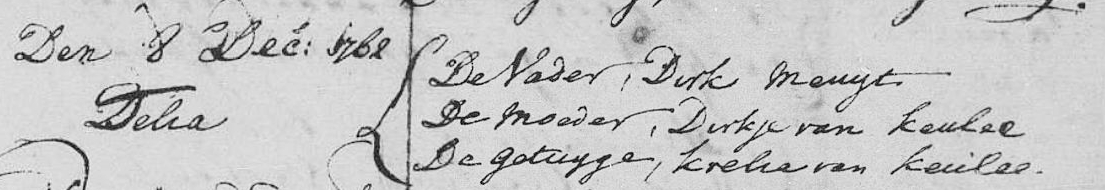 Den 8 Dec: 1762
Delia
De Vader, Dirk Meuyt
De Moeder, Dirkje van Keulee
De getuyge, Krelia van Keulee.